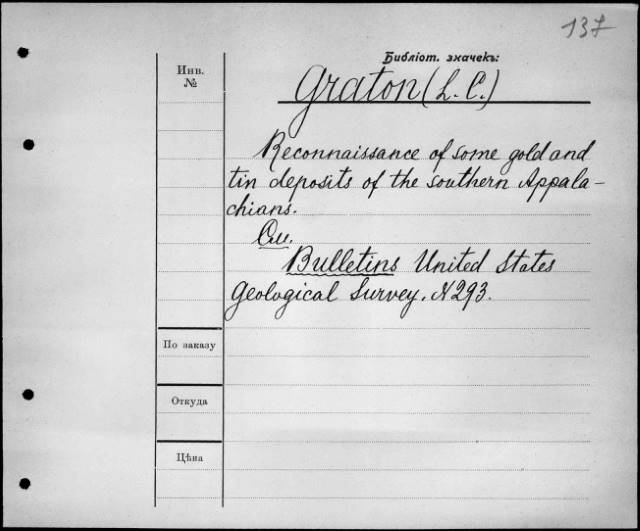 137
Библіот. значекъ:
Инв.
№
Graton (L. C.)
Reconnaissance of some gold and
tin deposits of the southern Appala-
chians.
См.
Bulletins United States
Geological Survey. N293.
По заказу
Откуда
Цѣна